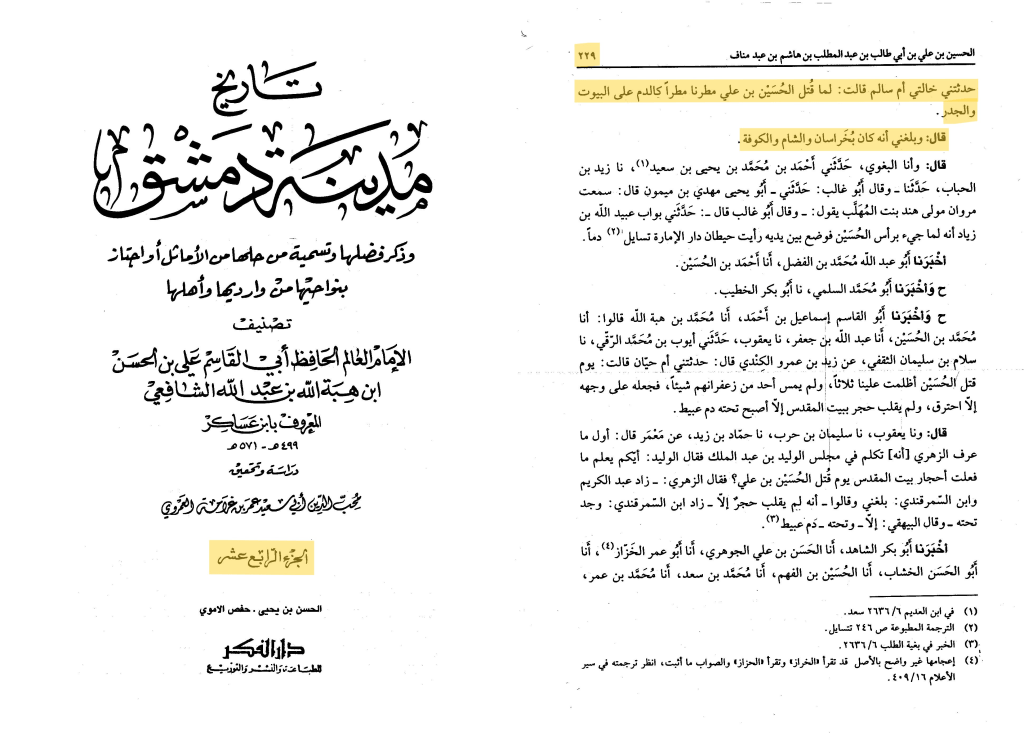 الحسين بن علي بن أبي طالب بن عبد المطلب بن هاشم بن عبد مناف ٢٢٩
حدثتني خالتي أم سالم قالت: لما قُتل الحُسَيْن بن علي مطرنا مطراً كالدم على البيوت
والجدر.
قال: وبلغني أنه كان بُخَراسان والشام والكوفة.
قال: وأنا البغوي، حَدَّثَني أَحْمَد بن مُحَمَّد بن يحيى بن سعيد(١)، نا زيد بن
الحباب، حَدَّثَنا ـ وقال أَبُو غالب: حَدَّثَني ـ أَبُو يحيى مهدي بن ميمون قال: سمعت
مروان مولى هند بنت المُهَلَّب يقول: ـ وقال أَبُو غالب قال ـ: حَدَّثَني بواب عبيد الله بن
زياد أنه لما جيء برأس الحُسَيْن فوضع بين يديه رأيت حيطان دار الإمارة تسايل(٢) دماً.
أخْبَرَنا أَبُو عبد الله مُحَمَّد بن الفضل، أَنا أَحْمَد بن الحُسَيْن.
ح وَأخْبَرَنا أَبُو مُحَمَّد السلمي، نا أَبُو بكر الخطيب.
ح وَأخْبَرَنا أَبُو القاسم إسماعيل بن أَحْمَد، أَنا مُحَمَّد بن هبة الله قالوا: أنا
مُحَمَّد بن الحُسَيْن، أَنا عبد الله بن جعفر، نا يعقوب، حَدَّثَني أيوب بن مُحَمَّد الرّقي، نا
سلام بن سليمان الثقفي، عن زيد بن عمرو الكِنْدي قال: حدثتني أم حيّان قالت: يوم
قتل الحُسَيْن أظلمت علينا ثلاثاً، ولم يمس أحد من زعفرانهم شيئاً، فجعله على وجهه
إلّا احترق، ولم يقلب حجر ببيت المقدس إلّا أصبح تحته دم عبيط.
قال: ونا يعقوب، نا سليمان بن حرب، نا حمّاد بن زيد، عن مَعْمَر قال: أول ما
عرف الزهري [أنه] تكلم في مجلس الوليد بن عبد الملك فقال الوليد: أيّكم يعلم ما
فعلت أحجار بيت المقدس يوم قُتل الحُسَيْن بن علي؟ فقال الزهري: ـ زاد عبد الكريم
وابن السّمرقندي: بلغني وقالوا ـ أنه لم يقلب حجرٌ إلّا ـ زاد ابن السّمرقندي: وجد
تحته ـ وقال البيهقي: إلّا ـ وتحته ـ دَم عبيط(٣).
أخْبَرَنا أَبُو بكر الشاهد، أَنا الحَسَن بن علي الجوهري، أَنا أَبُو عمر الخَزّاز(٤)، أَنا
أَبُو الحَسَن الخشاب، أَنا الحُسَيْن بن الفهم، أَنا مُحَمَّد بن سعد، أَنا مُحَمَّد بن عمر،
(١) في ابن العديم ٦/ ٢٦٣٦ سعد.
(٢) الترجمة المطبوعة ص ٢٤٦ تتسايل.
(٣) الخبر في بغية الطلب ٦/ ٢٦٣٦.
(٤) إعجامها غير واضح بالأصل قد تقرأ «الخراز» وتقرأ «الحزاز» والصواب ما أثبت، انظر ترجمته في سير
الأعلام ١٦/ ٤٠٩.
تاريخ
مدينة دمشق
وذكر فضلها وتسمية من حلها من الأماثل أو اجتاز
بنواحيها من وارديها وأهلها
تصنيف
الإمام العالم الحافظ أبي القاسم علي بن الحسن
ابن هبة الله بن عبد الله الشافعي
المعروف بابن عساكر
٤٩٩ هـ - ٥٧١ هـ
دراسة وتحقيق
محب الدين أبي سعيد عمر بن غرامة العمروي
الجزء الرابع عشر
الحسن بن يحيى - حفص الاموي
دار الفكر
للطباعة والنشر والتوزيع